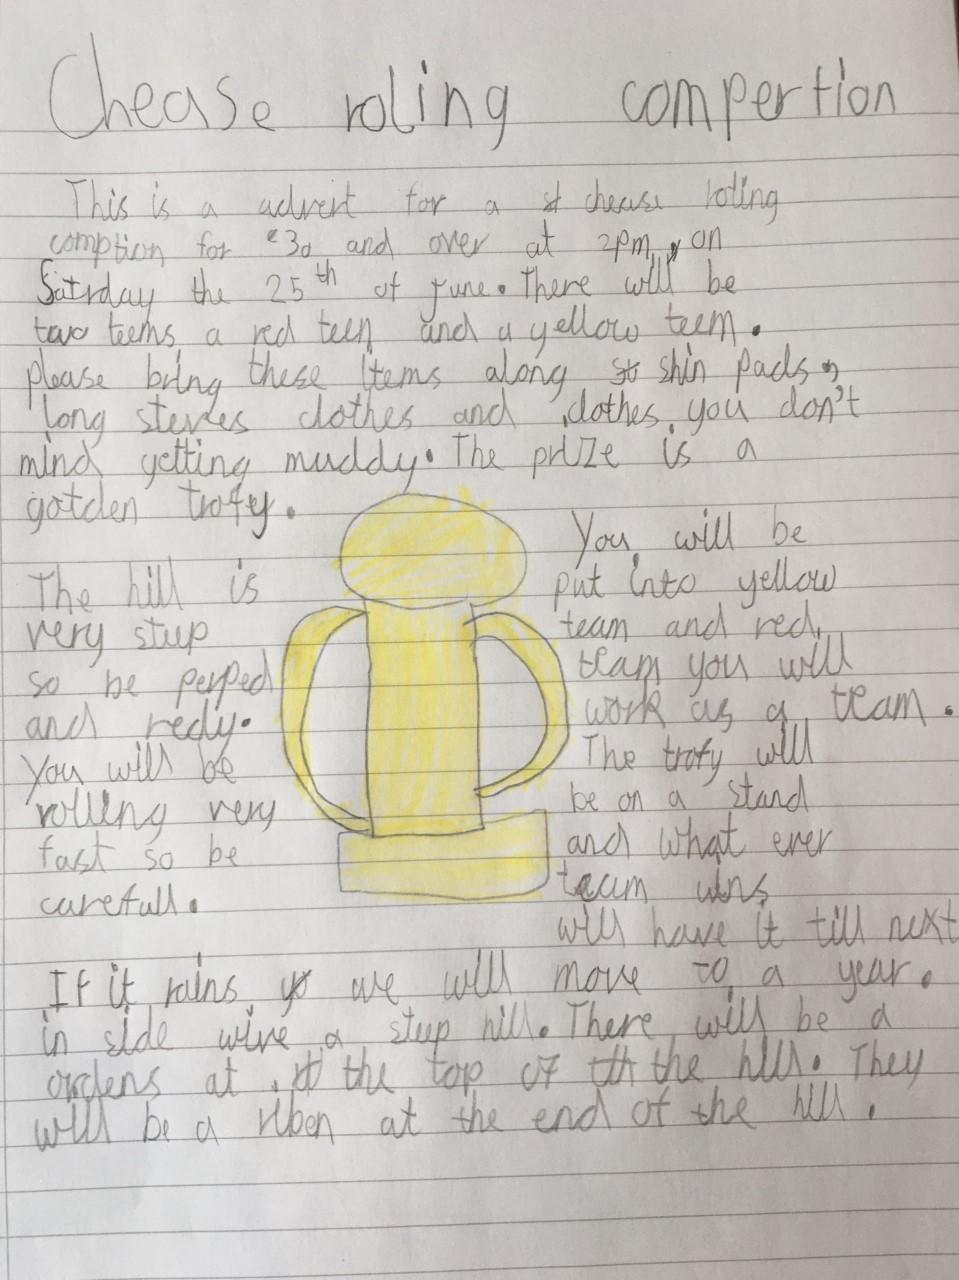 Chease roling compertion
This is a advert for a chease roling
comption for 30 and over at 2pm, on
Satrday the 25th of June. There will be
two teems a red teem and a yellow teem.
please bring these items along shin pads,
long steves clothes and clothes you don't
mind getting muddy. The prize is a
golden trofy.
The hill is
very stup
so be perped
and redy.
You will be
rolling very
fast so be
carefull.
You will be
put into yellow
team and red,
team you will
work as a team.
The trofy will
be on a stand
and what ever
team wins
will have it till next
year.
If it rains we will move to a
in side wive a stup hill. There will be a
ordens at the top of the hill. They
will be a riben at the end of the hill.